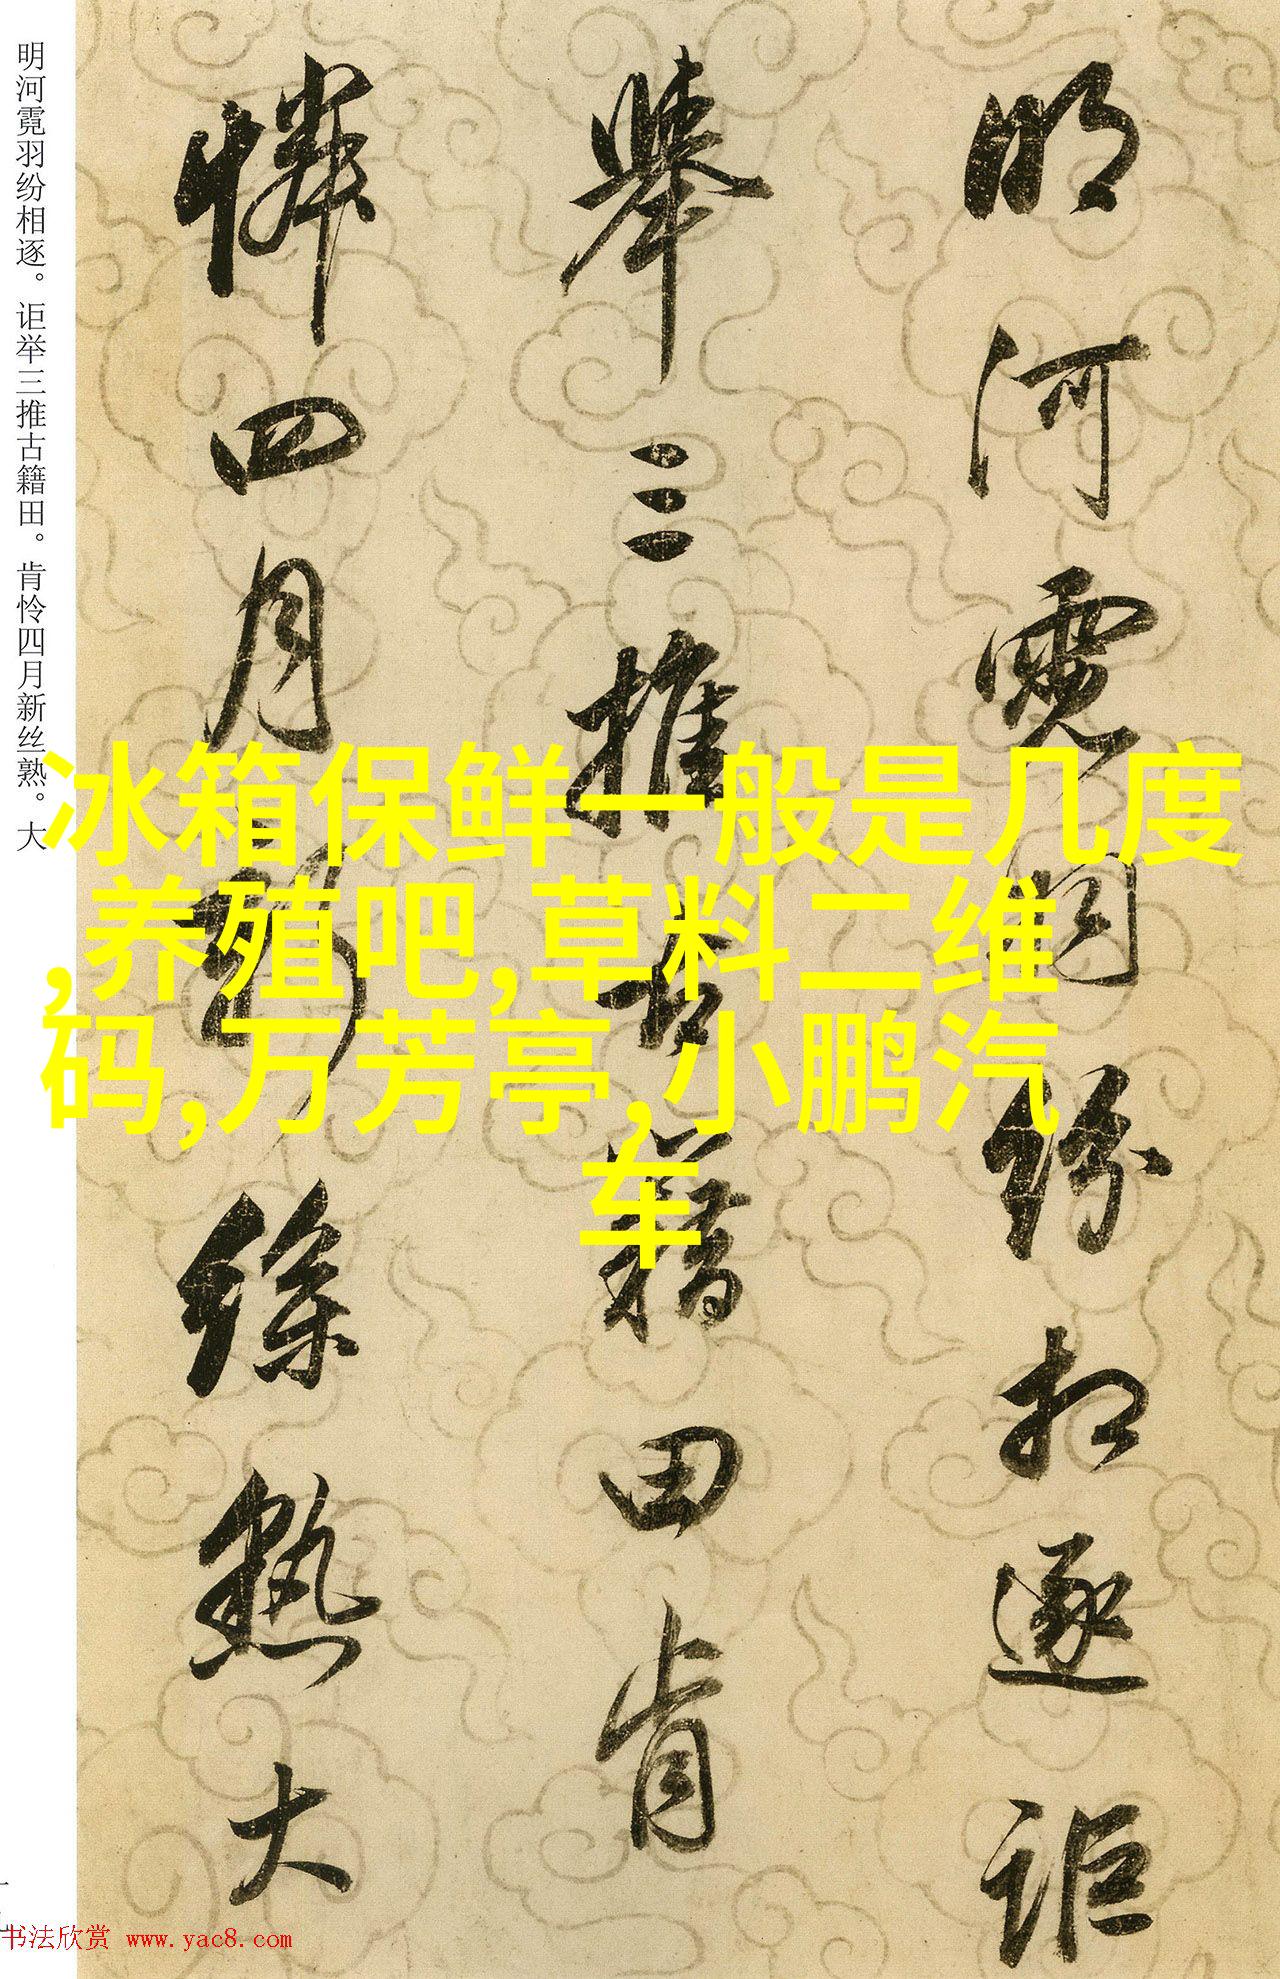 明河霓羽纷相逐。讵举三推古籍田。肯怜四月新丝熟。大
明河霓羽紛相逐詎
舉三推古籍田肯
憐四月新絲熟大
冰箱保鲜一般是几度
,养殖吧,草料二维
码,万芳亭,小鹏汽
车
书法欣赏 www.yac8.com